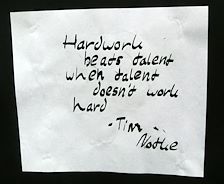 Hardwork
beats talent
when talent
doesn't work
hard
- Tim
Notke